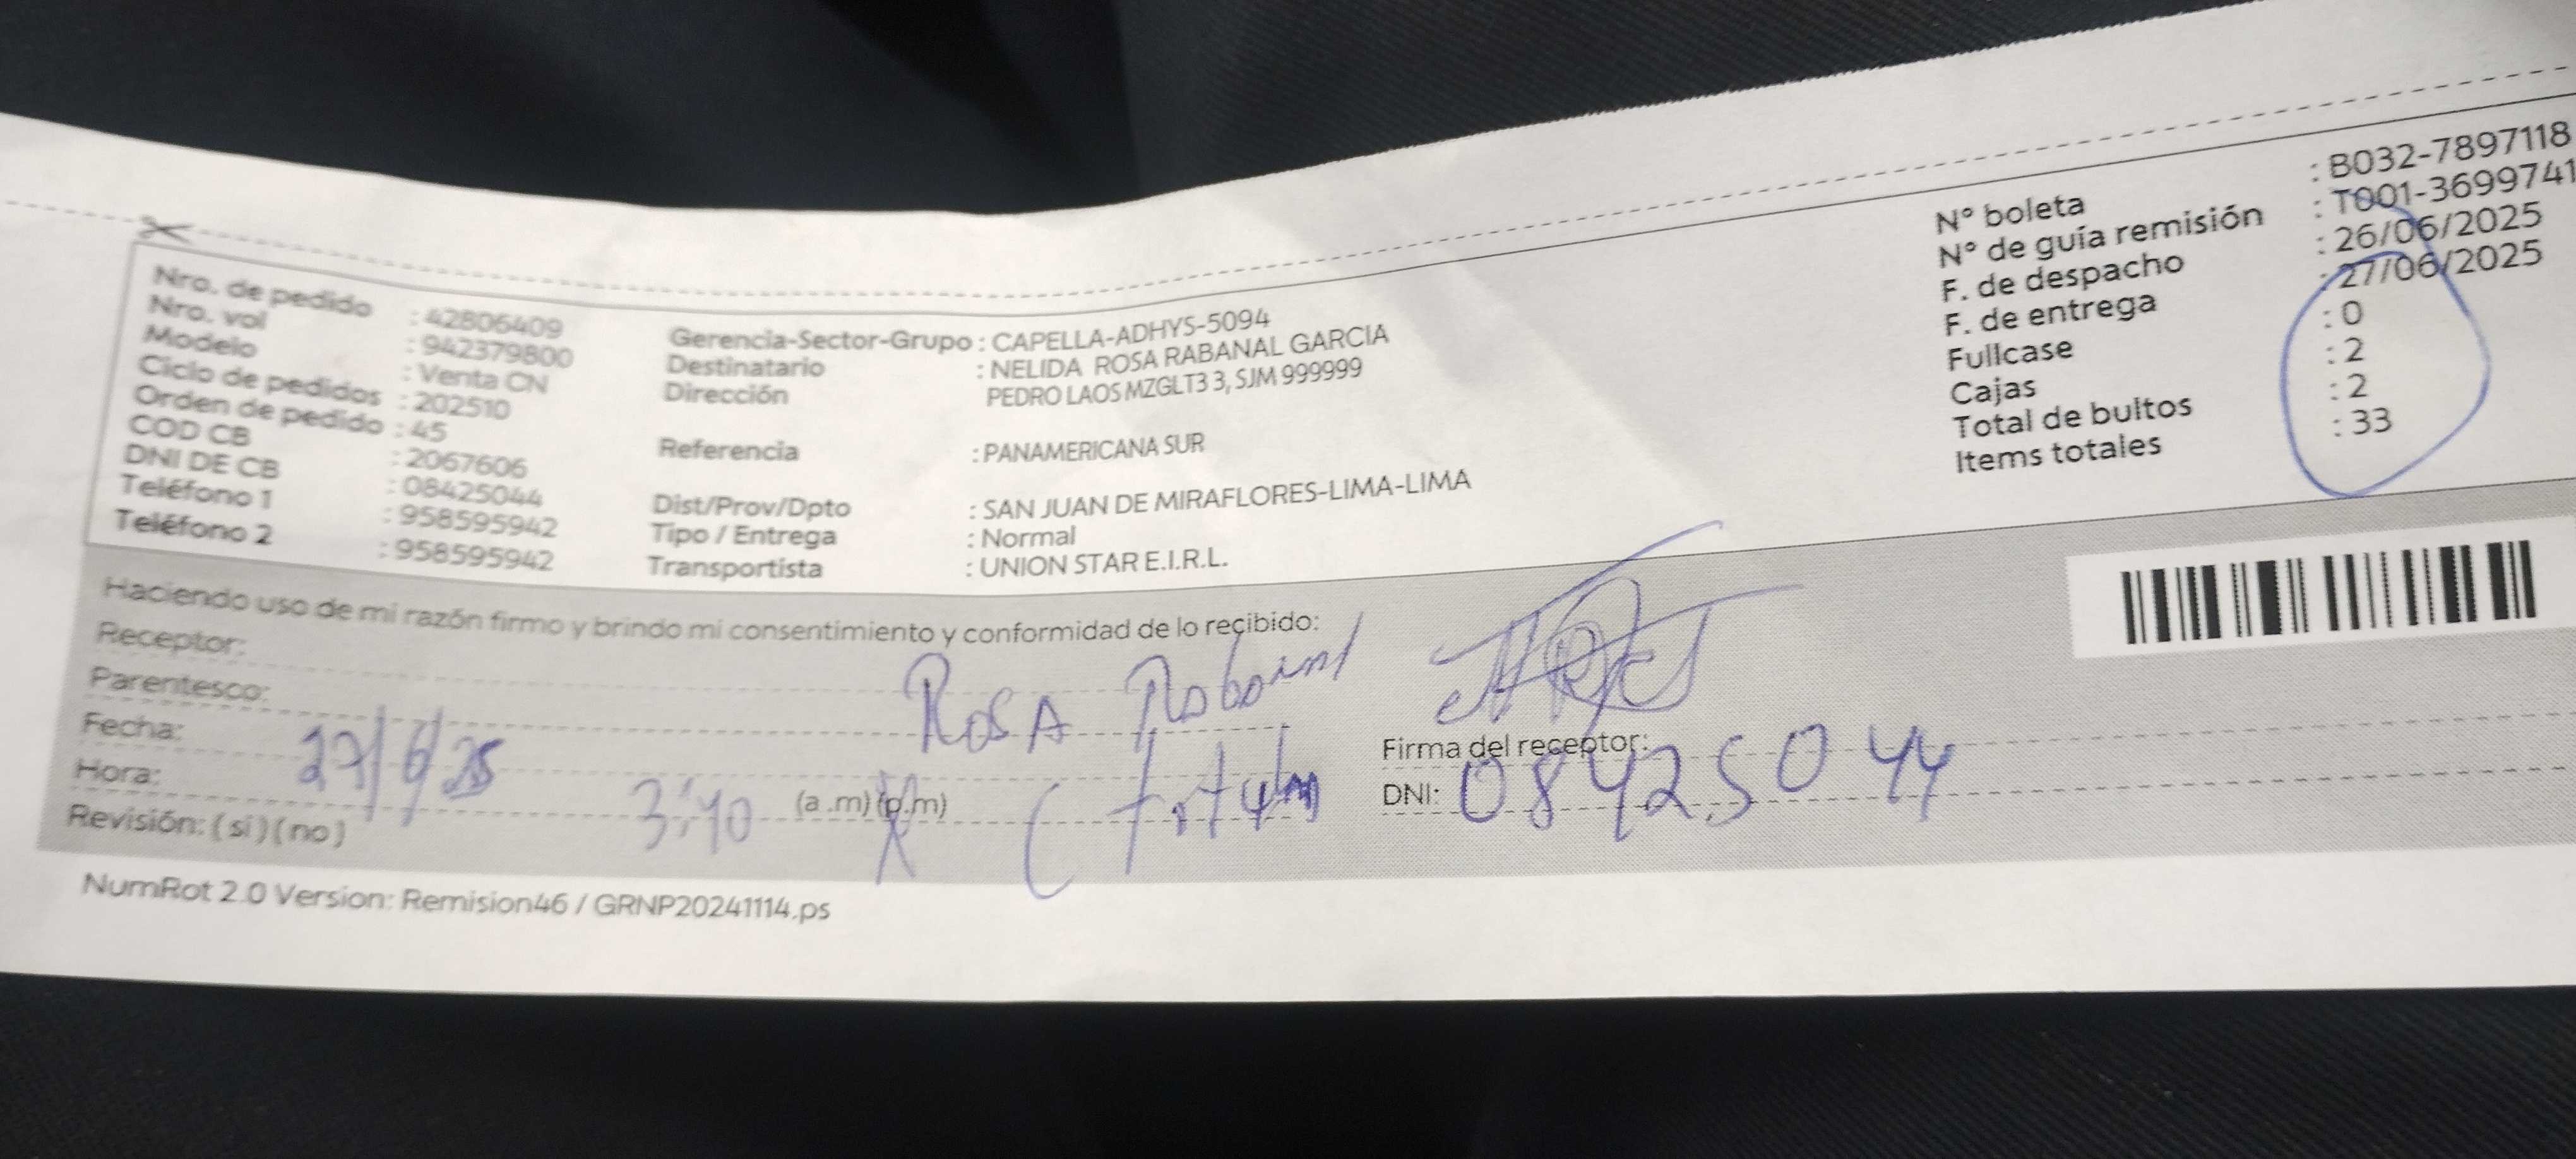 Nro. de pedido : 42806409
Nro. vol : 942379800
Modelo : Venta CN
Ciclo de pedidos : 202510
Orden de pedido : 45
COD CB : 2067606
DNI DE CB : 08425044
Teléfono 1 : 958595942
Teléfono 2 : 958595942
Gerencia-Sector-Grupo : CAPELLA-ADHYS-5094
Destinatario : NELIDA ROSA RABANAL GARCIA
Dirección PEDRO LAOS MZGLT3 3, SJM 999999
Referencia : PANAMERICANA SUR
Dist/Prov/Dpto : SAN JUAN DE MIRAFLORES-LIMA-LIMA
Tipo / Entrega : Normal
Transportista : UNION STAR E.I.R.L.
N° boleta : B032-7897118
N° de guía remisión : T001-3699741
F. de despacho : 26/06/2025
F. de entrega : 27/06/2025
Fullcase : 0
Cajas : 2
Total de bultos : 2
Items totales : 33
Haciendo uso de mi razón firmo y brindo mi consentimiento y conformidad de lo recibido:
Receptor: Rosa
Parentesco:
Fecha: 27/6/25
Firma del receptor:
Hora: 3:40 (a .m) (p.m) ( titular
DNI: 08425044
Revisión: ( si ) ( no )
NumRot 2.0 Version: Remision46 / GRNP20241114.ps